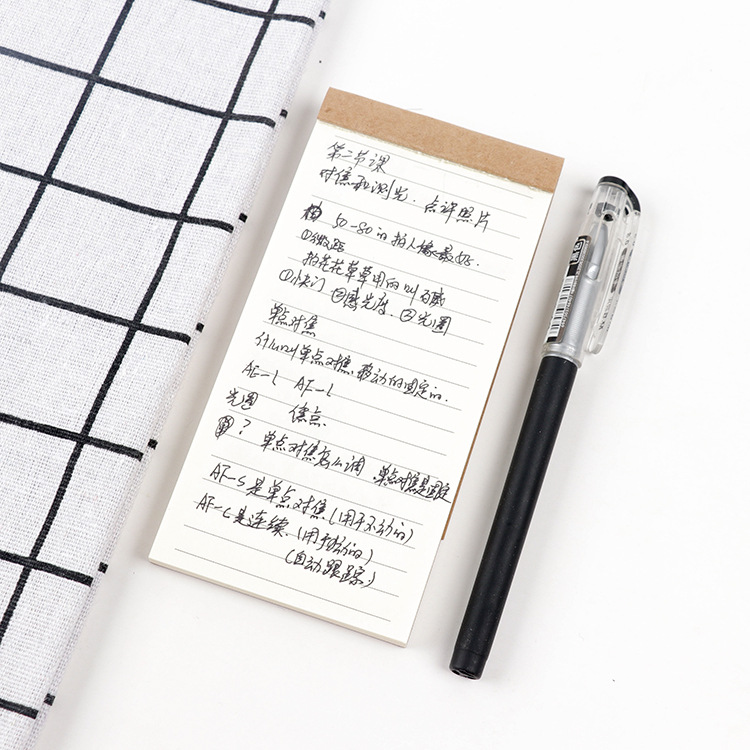 第二节课
对焦和测光.点评照片
50-80的拍人像最好.
①微距
拍花花草草用的叫百微
①快门 ②感光度 ③光圈
单点对焦
什么叫单点对焦.移动的固定的.
AE-L AF-L
光圈 焦点
? 单点对焦怎么调 单点对焦是固定
AF-S是单点对焦(用于不动的)
AF-C是连续.(用于动的)
(自动跟踪)